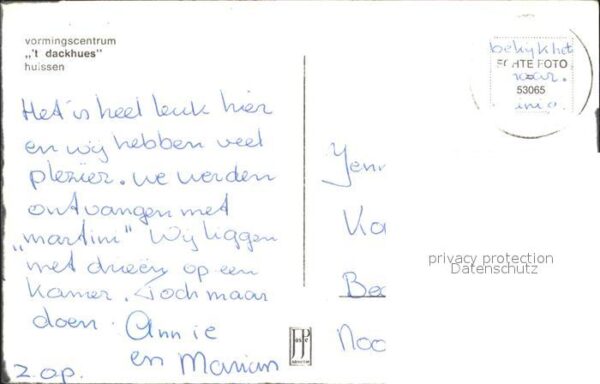 vormingscentrum
„'t dackhues"
huissen
Het is heel leuk hier
en wij hebben veel
plezier. we werden
ontvangen met
„martini" Wij liggen
met drieën op een
kamer. Toch maar
doen. Annie
en Marian
z.op.
bekijk het
ECHTE FOTO
maar.
53065
Jenn
Ka
Bee
Noo
privacy protection
Datenschutz